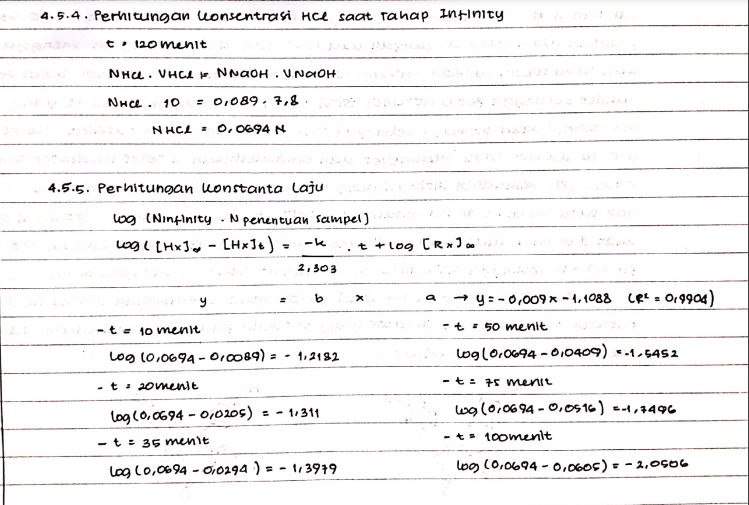 4.5.4. Perhitungan Konsentrasi HCl saat Tahap Infinity
t = 120 menit
NHCl . VHCl = NNaOH . VNaOH
NHCl . 10 = 0,089 . 7,8
NHCl = 0,0694 N
4.5.5. Perhitungan Konstanta Laju
log (Ninfinity - N penentuan sampel)
log ( [Hx]∞ - [Hx]t ) = -k/2,303 . t + log [Rx]∞
y = b x a → y = -0,009x - 1,1088 (R² = 0,9904)
- t = 10 menit
log (0,0694 - 0,0089) = - 1,2182
- t = 20 menit
log (0,0694 - 0,0205) = - 1,311
- t = 35 menit
log (0,0694 - 0,0294) = - 1,3979
- t = 50 menit
log (0,0694 - 0,0409) = -1,5452
- t = 75 menit
log (0,0694 - 0,0516) = -1,7496
- t = 100 menit
log (0,0694 - 0,0605) = - 2,0506